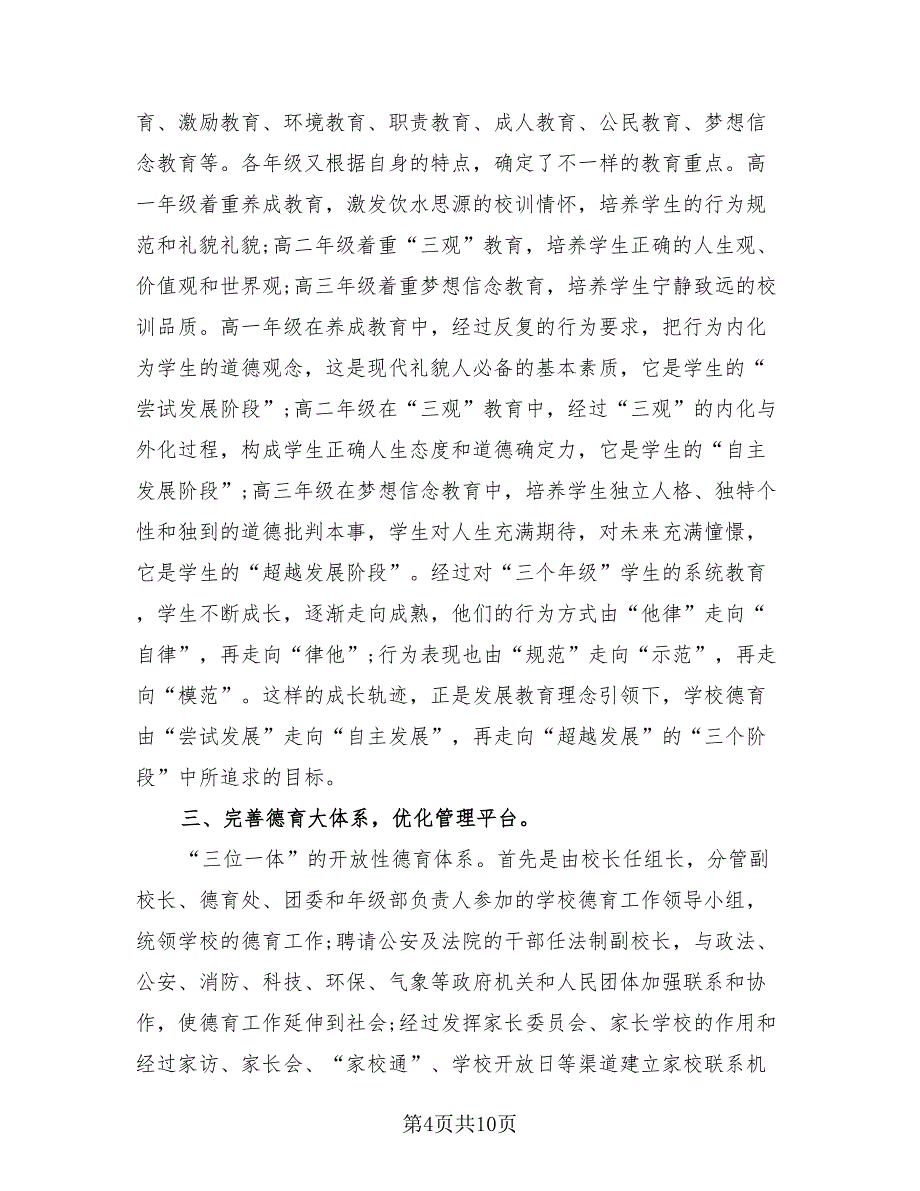 育、激励教育、环境教育、职责教育、成人教育、公民教育、梦想信
念教育等。各年级又根据自身的特点，确定了不一样的教育重点。高
一年级着重养成教育，激发饮水思源的校训情怀，培养学生的行为规
范和礼貌礼貌;高二年级着重“三观”教育，培养学生正确的人生观、
价值观和世界观;高三年级着重梦想信念教育，培养学生宁静致远的校
训品质。高一年级在养成教育中，经过反复的行为要求，把行为内化
为学生的道德观念，这是现代礼貌人必备的基本素质，它是学生的“
尝试发展阶段”;高二年级在“三观”教育中，经过“三观”的内化与
外化过程，构成学生正确人生态度和道德确定力，它是学生的“自主
发展阶段”;高三年级在梦想信念教育中，培养学生独立人格、独特个
性和独到的道德批判本事，学生对人生充满期待，对未来充满憧憬，
它是学生的“超越发展阶段”。经过对“三个年级”学生的系统教育
，学生不断成长，逐渐走向成熟，他们的行为方式由“他律”走向“
自律”，再走向“律他”;行为表现也由“规范”走向“示范”，再走
向“模范”。这样的成长轨迹，正是发展教育理念引领下，学校德育
由“尝试发展”走向“自主发展”，再走向“超越发展”的“三个阶
段”中所追求的目标。
三、完善德育大体系，优化管理平台。
“三位一体”的开放性德育体系。首先是由校长任组长，分管副
校长、德育处、团委和年级部负责人参加的学校德育工作领导小组，
统领学校的德育工作;聘请公安及法院的干部任法制副校长，与政法、
公安、消防、科技、环保、气象等政府机关和人民团体加强联系和协
作，使德育工作延伸到社会;经过发挥家长委员会、家长学校的作用和
经过家访、家长会、“家校通”、学校开放日等渠道建立家校联系机
第4页共10页